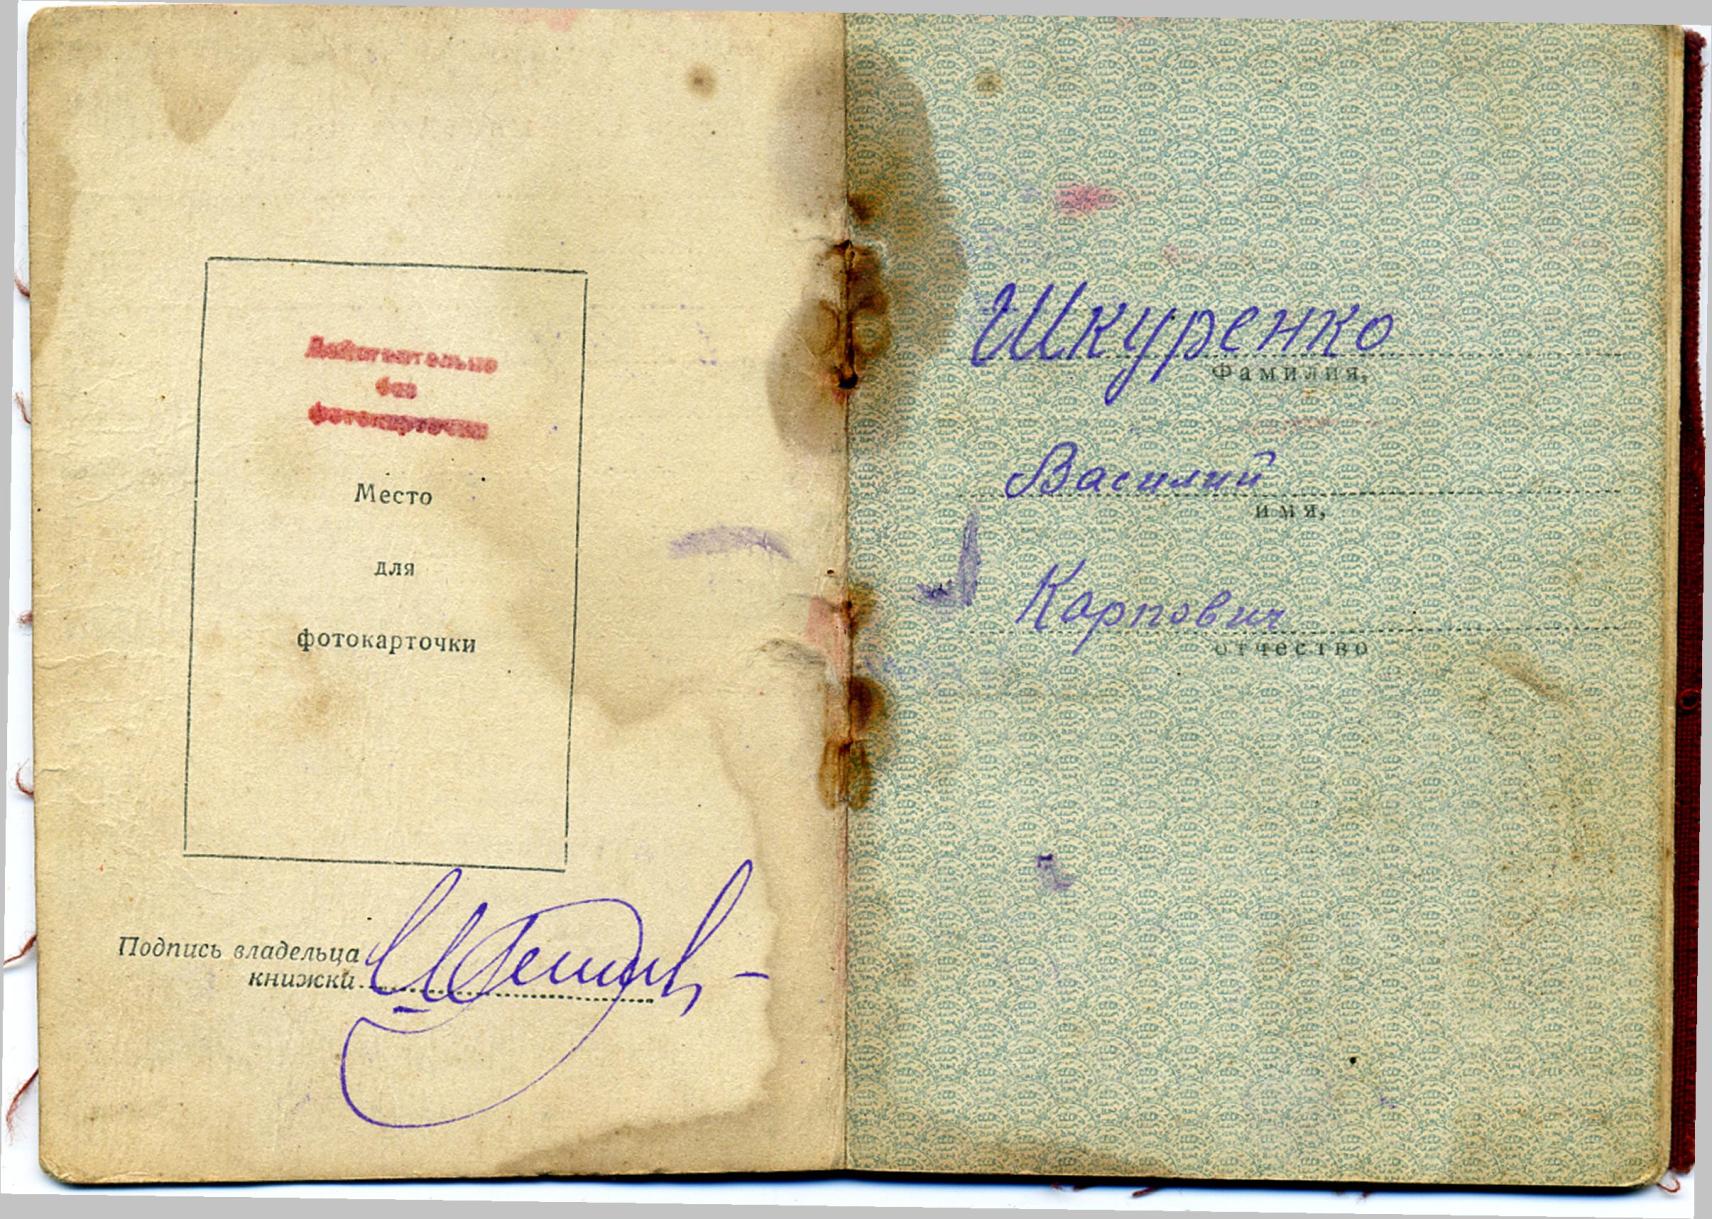 Действительно
без
фотокарточки
Место
для
фотокарточки
Подпись владельца
книжки
Шкуренко
Фамилия,
Василий
имя,
Карпович
отчество